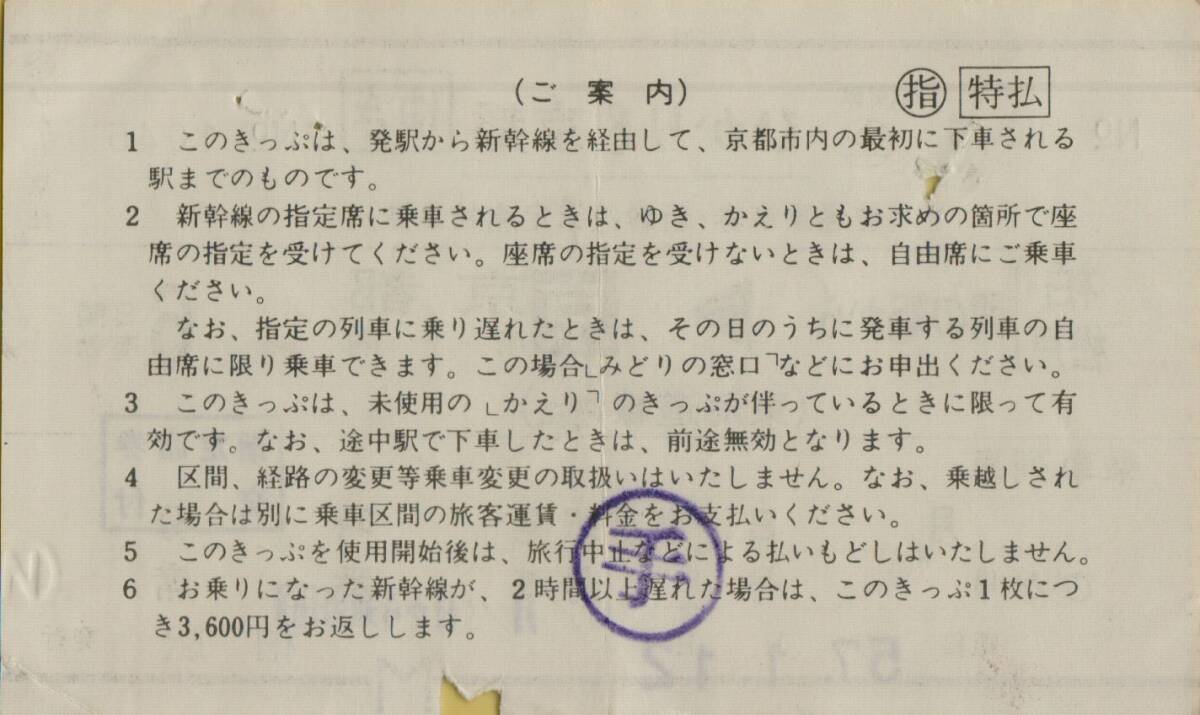 (ご案内) 指 特払
1 このきっぷは、発駅から新幹線を経由して、京都市内の最初に下車される
駅までのものです。
2 新幹線の指定席に乗車されるときは、ゆき、かえりともお求めの箇所で座
席の指定を受けてください。座席の指定を受けないときは、自由席にご乗車
ください。
なお、指定の列車に乗り遅れたときは、その日のうちに発車する列車の自
由席に限り乗車できます。この場合﹂みどりの窓口﹁などにお申出ください。
3 このきっぷは、未使用の﹂かえり﹁のきっぷが伴っているときに限って有
効です。なお、途中駅で下車したときは、前途無効となります。
4 区間、経路の変更等乗車変更の取扱いはいたしません。なお、乗越しされ
た場合は別に乗車区間の旅客運賃・料金をお支払いください。
5 このきっぷを使用開始後は、旅行中止などによる払いもどしはいたしません。
6 お乗りになった新幹線が、2時間以上遅れた場合は、このきっぷ1枚につ
き3,600円をお返しします。